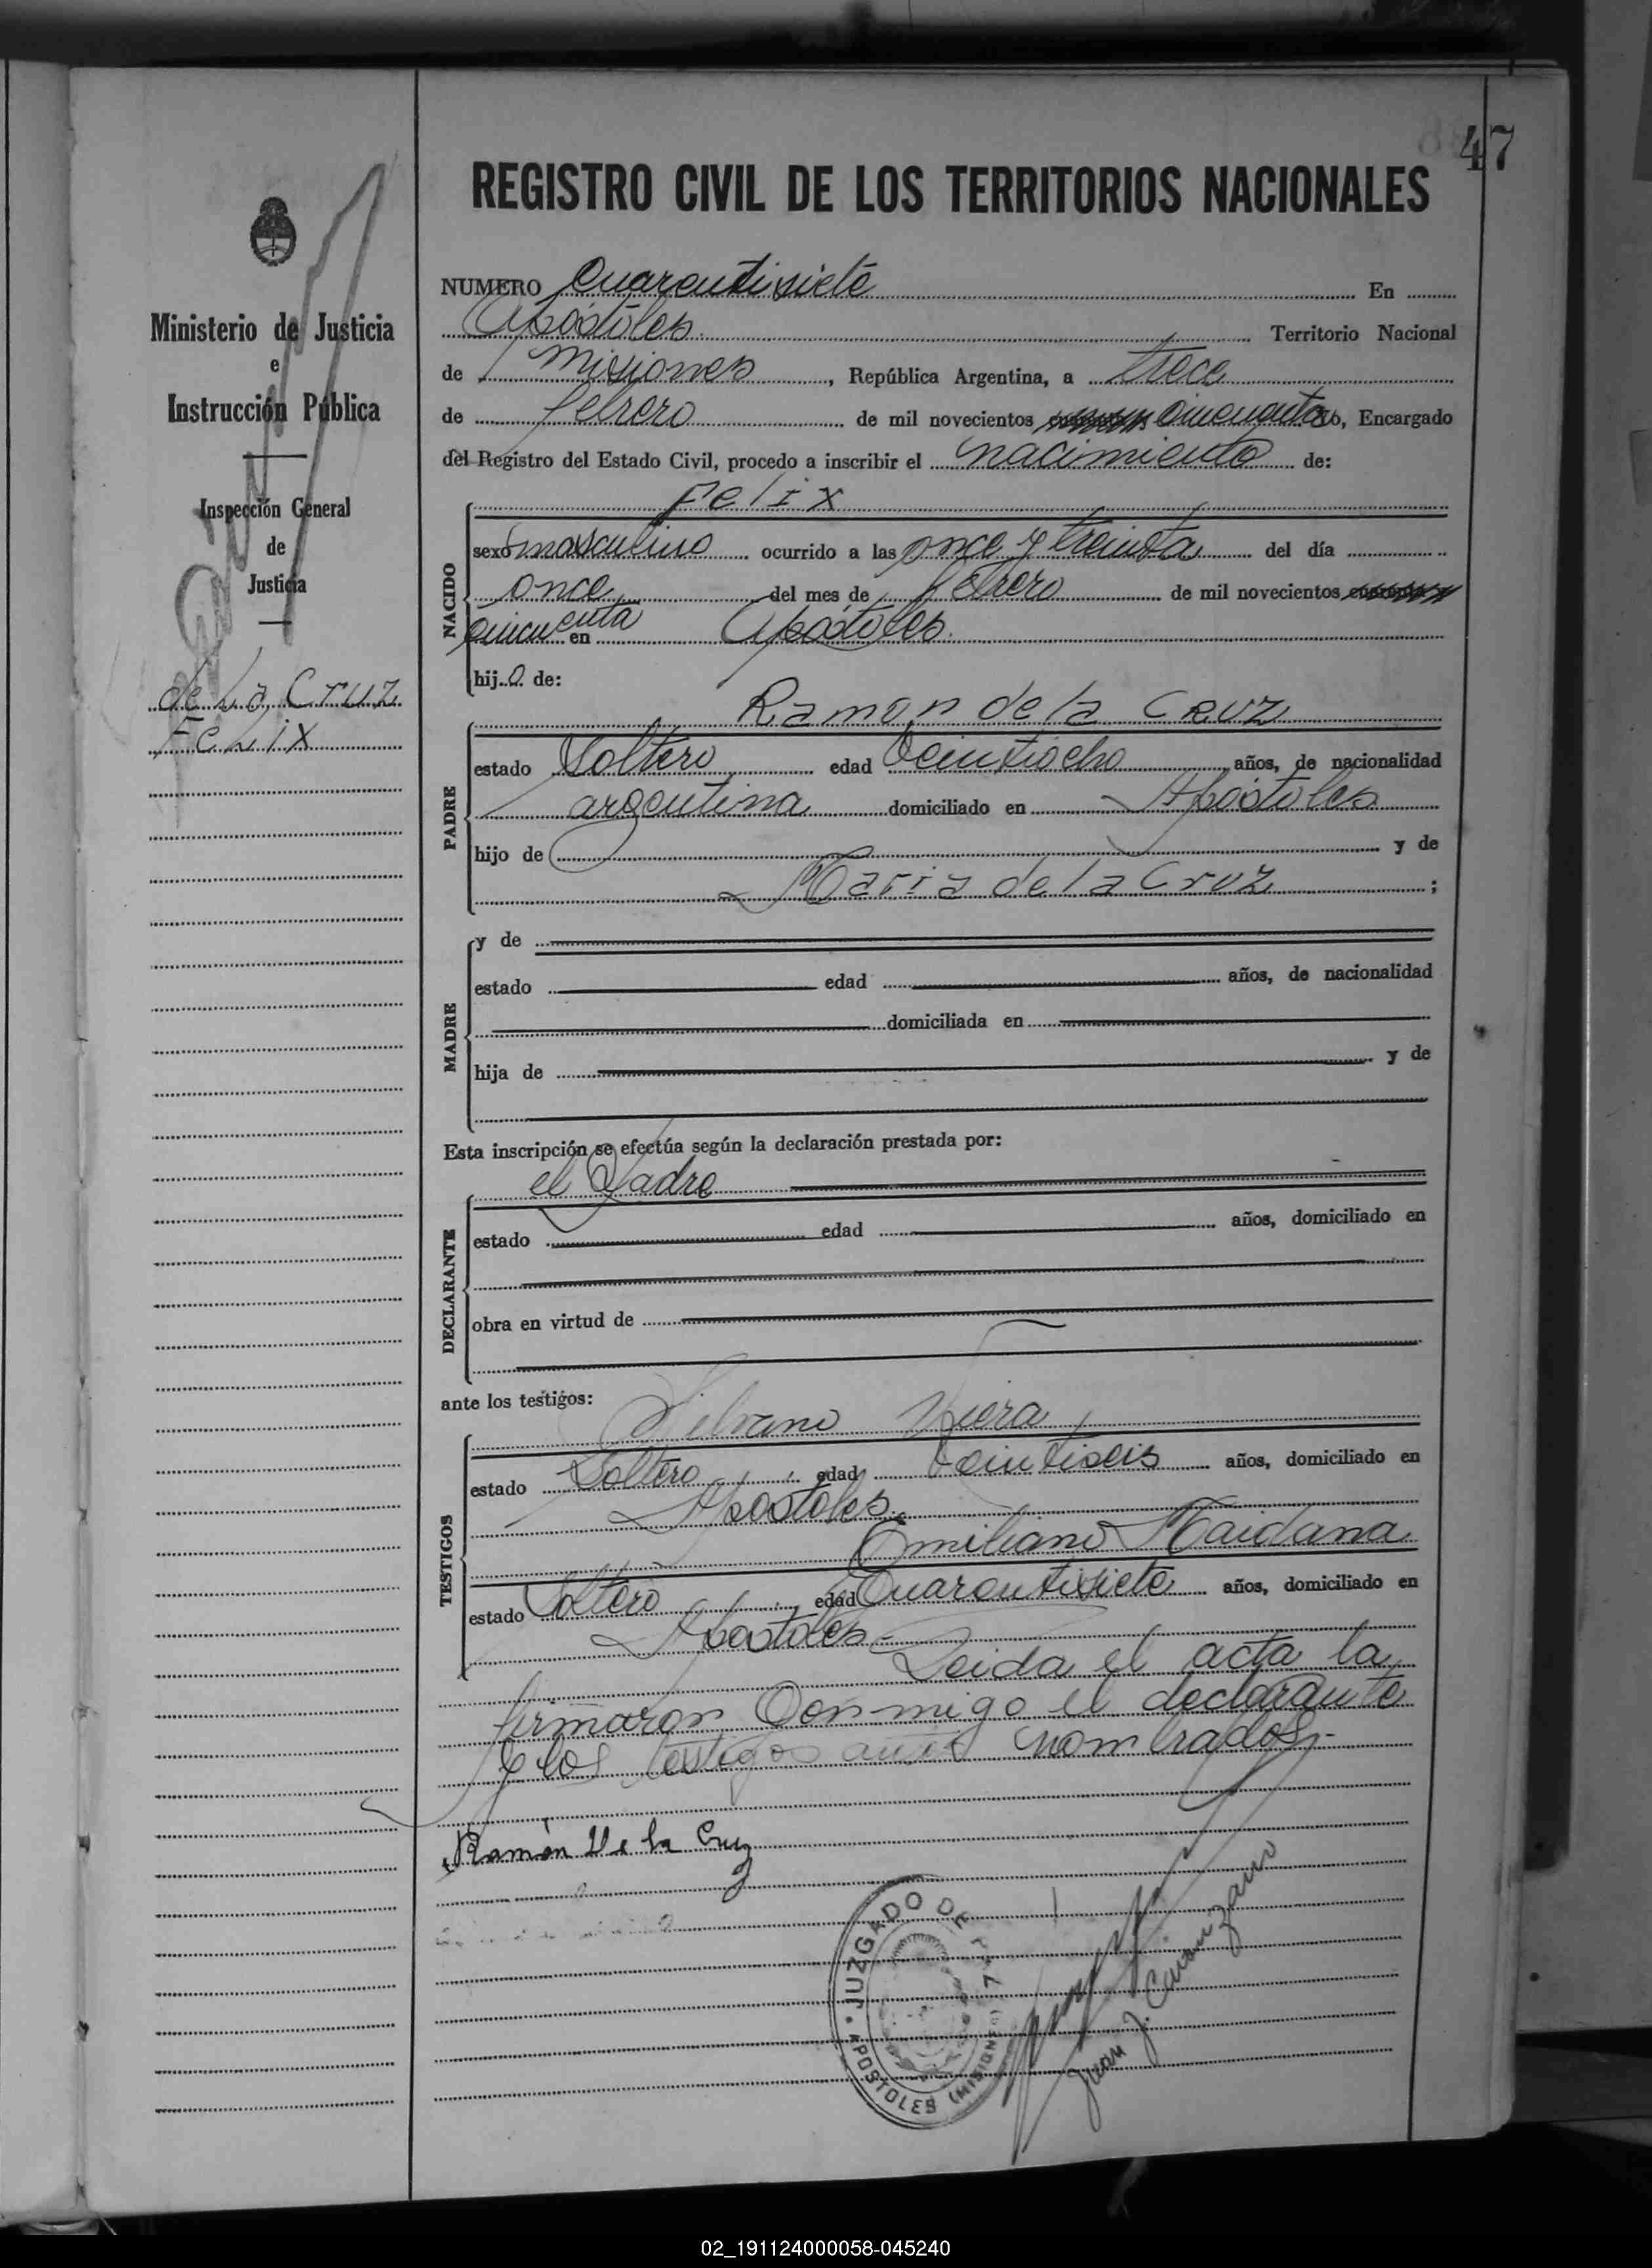 47
REGISTRO CIVIL DE LOS TERRITORIOS NACIONALES
Ministerio de Justicia
e
Instrucción Pública
Inspección General
de
Justicia
de La Cruz
Felix
NUMERO Cuarentisiete En
Apóstoles Territorio Nacional
de Misiones, República Argentina, a trece
de febrero de mil novecientos cincuenta yo, Encargado
del Registro del Estado Civil, procedo a inscribir el nacimiento de:
Felix
NACIDO
sexo masculino ocurrido a las once y treinta del día
once del mes de febrero de mil novecientos cuarenta
cincuenta en Apóstoles.
hijo de:
Ramon de la Cruz
PADRE
estado Soltero edad Veintiocho años, de nacionalidad
argentina domiciliado en Apóstoles
hijo de y de
Maria de la Cruz ;
MADRE
y de
estado edad años, de nacionalidad
domiciliada en
hija de y de
Esta inscripción se efectúa según la declaración prestada por:
el Padre
DECLARANTE
estado edad años, domiciliado en
obra en virtud de
ante los testigos:
Silvano Viera
TESTIGOS
estado Soltero edad Veintiseis años, domiciliado en
Apóstoles.
Emiliano Maidana
estado Soltero edad Cuarentisiete años, domiciliado en
Apostoles.-
Leida el acta la
firmaron conmigo el declarante
y los testigos antes nombrados.-
Ramón De la Cruz
JUZGADO DE PAZ
APOSTOLES (MISIONES)
Juan J.
02_191124000058-045240